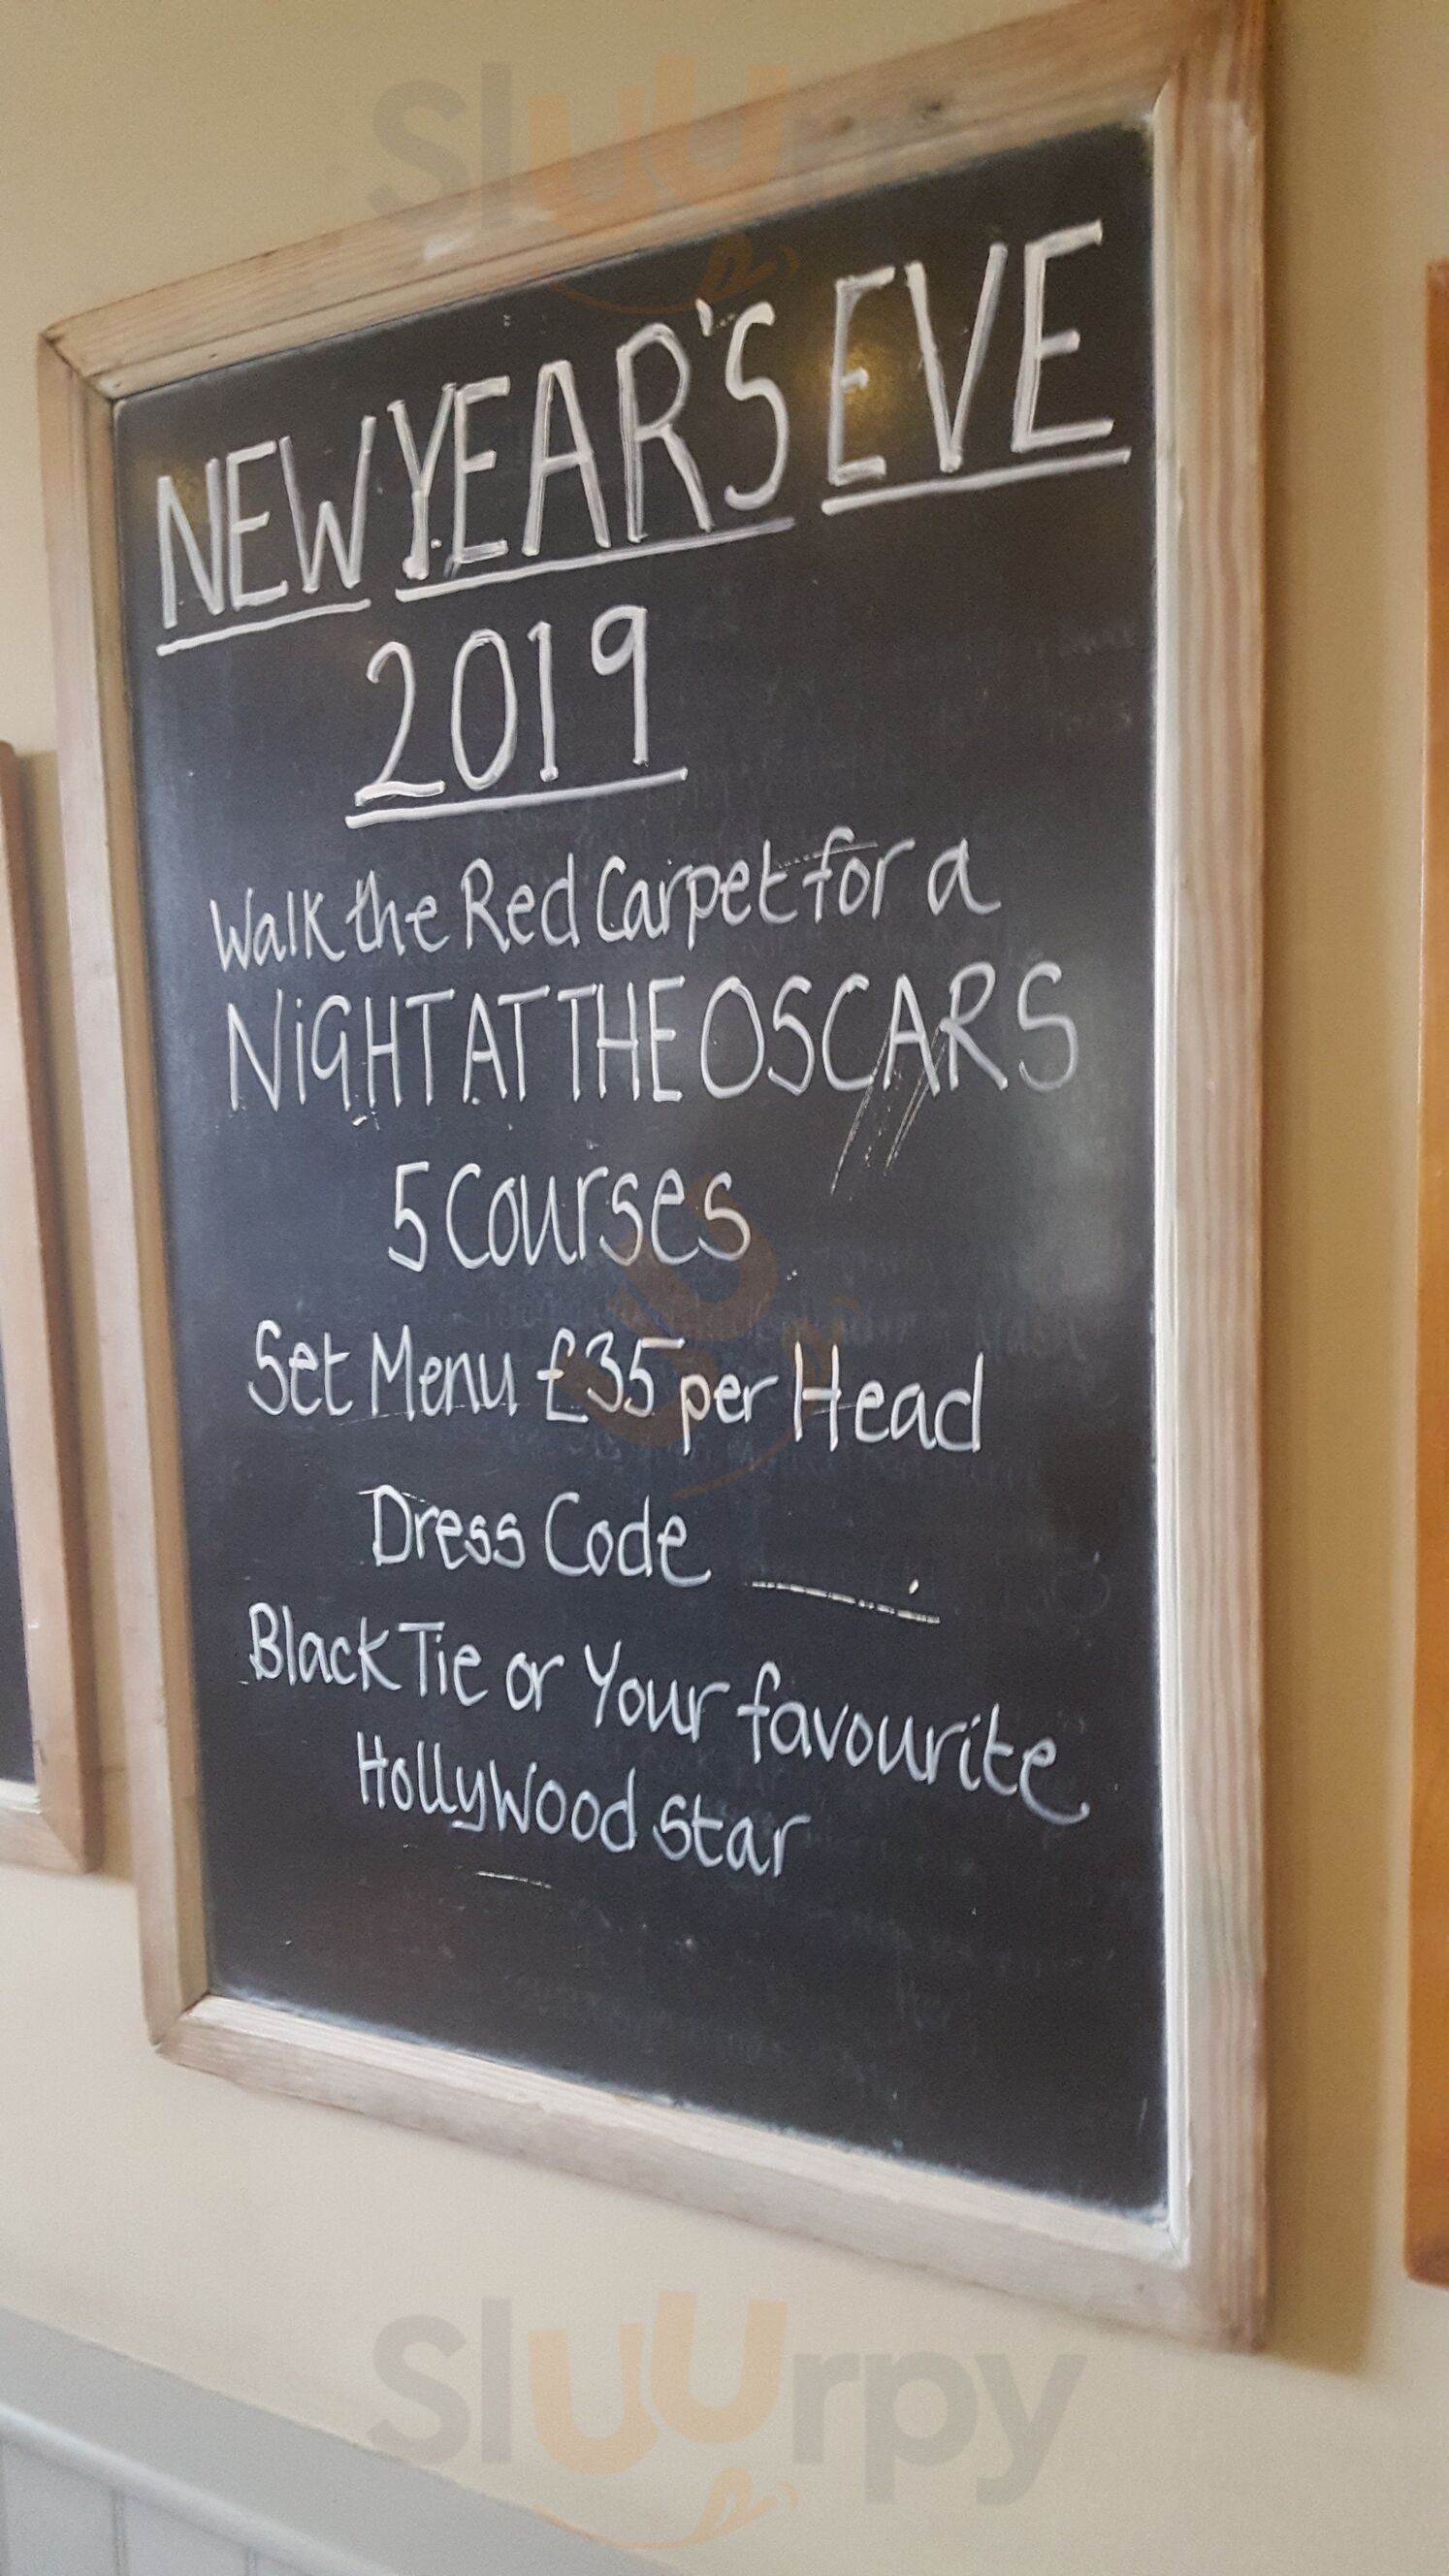 Sluurpy
NEW YEAR'S EVE
2019
Walk the Red Carpet for a
NiGHT AT THE OSCARS
5 Courses
Set Menu £35 per Head
Dress Code
Black Tie or Your favourite
Hollywood Star
Sluurpy